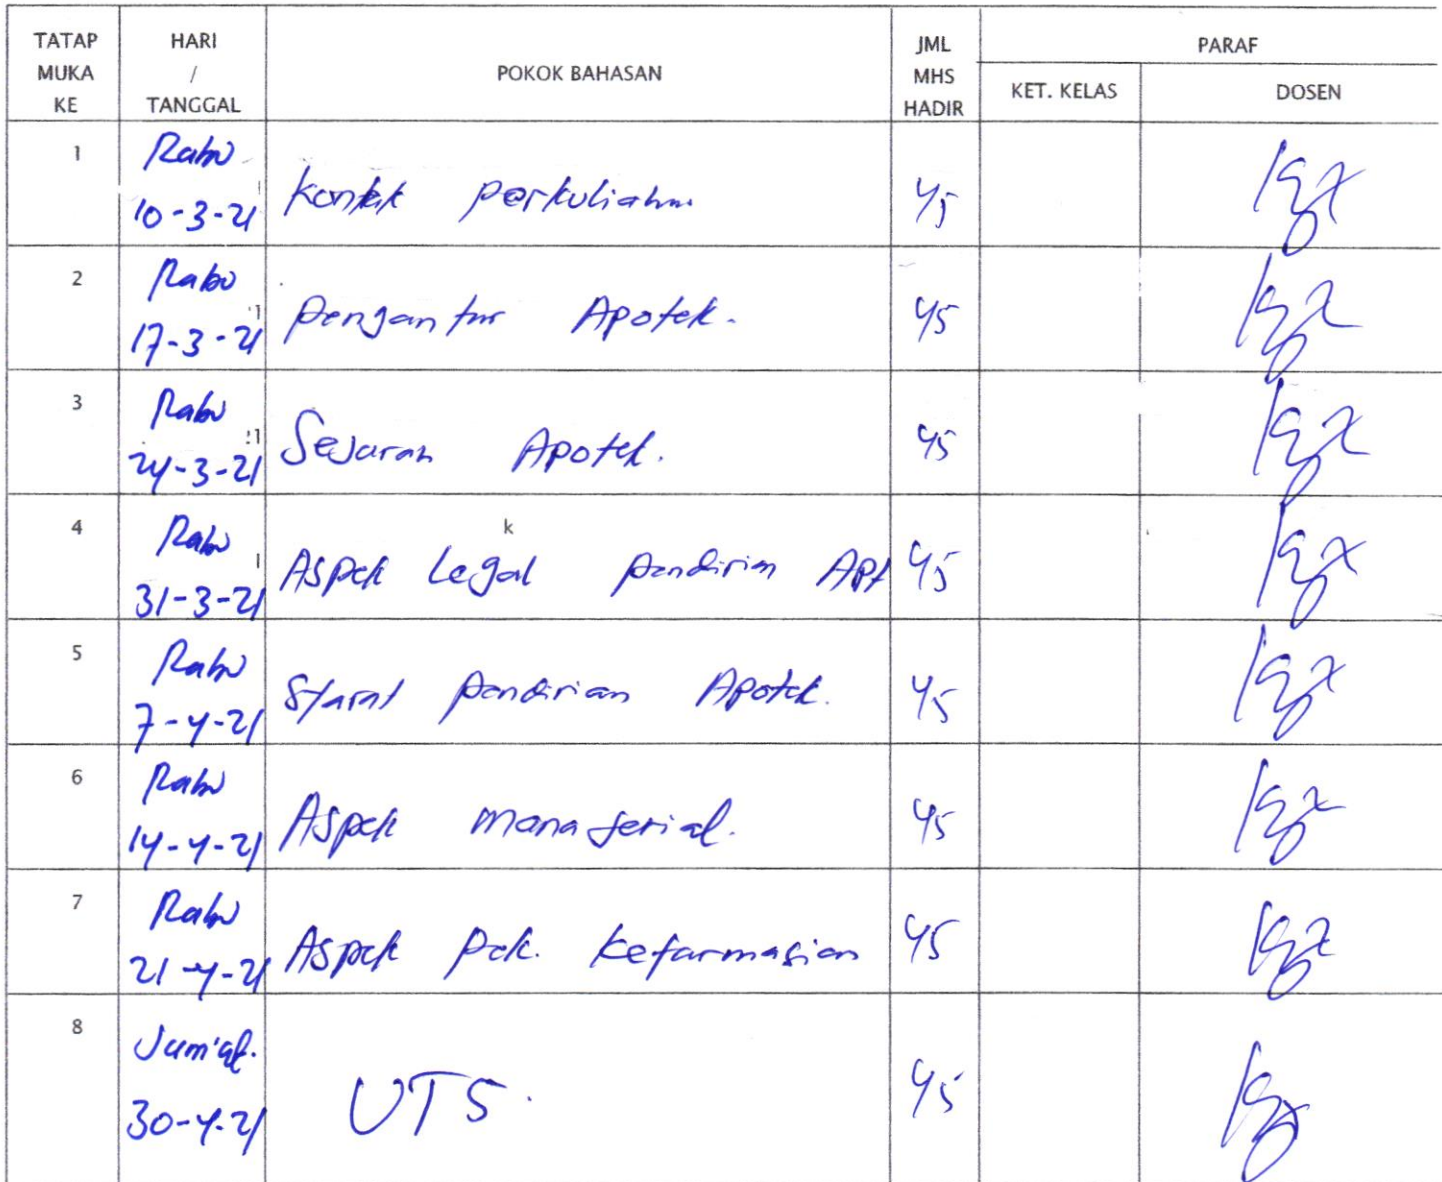 TATAP MUKA KE HARI / TANGGAL POKOK BAHASAN JML MHS HADIR PARAF
KET. KELAS DOSEN
1 Rabu 10-3-21 Kontrak perkuliahan 45
2 Rabu 17-3-21 Pengantar Apotek. 45
3 Rabu 24-3-21 Sejarah Apotek. 45
k
4 Rabu 31-3-21 Aspek Legal pendirian Apt 45
5 Rabu 7-4-21 Syarat pendirian Apotek. 45
6 Rabu 14-4-21 Aspek manajerial. 45
7 Rabu 21-4-21 Aspek pek. kefarmasian 45
8 Jum'at. 30-4-21 UTS. 45